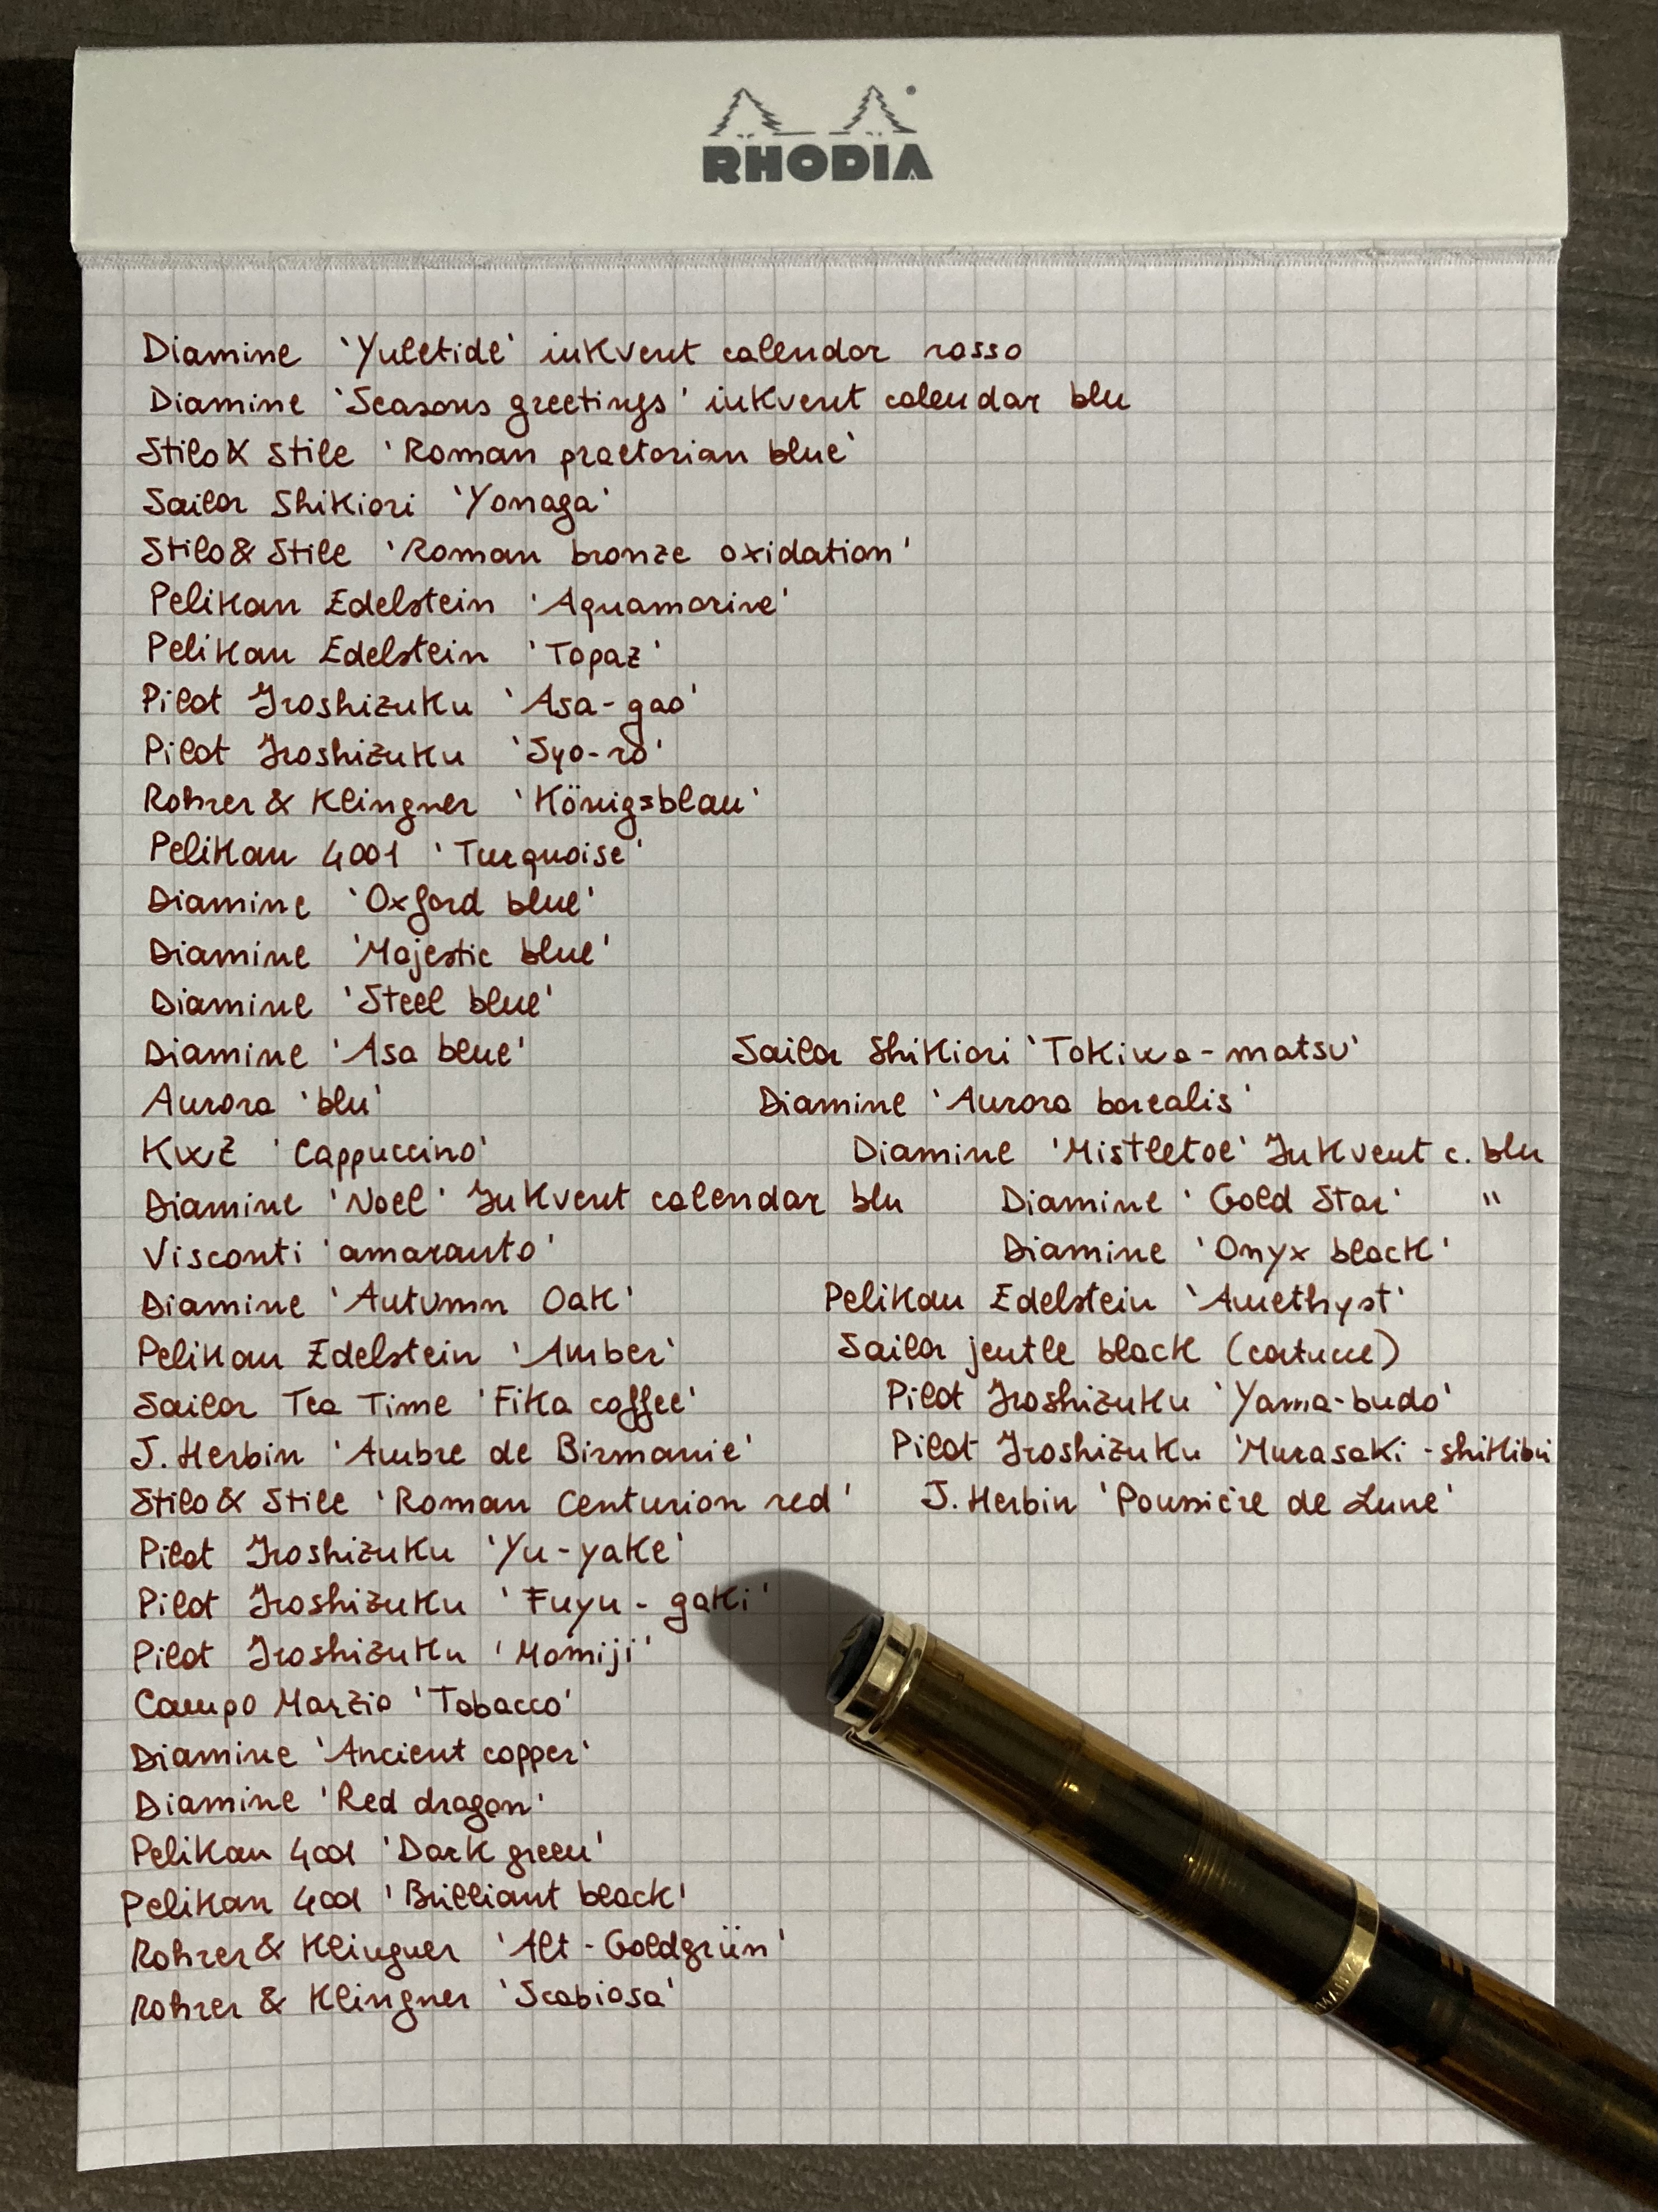 RHODIA
Diamine 'Yuletide' inkvent calendar rosso
Diamine 'Seasons greetings' inkvent calendar blu
Stilo & Stile 'Roman praetorian blue'
Sailor Shikiori 'Yonaga'
Stilo & Stile 'Roman bronze oxidation'
Pelikan Edelstein 'Aquamarine'
Pelikan Edelstein 'Topaz'
Pilot Iroshizuku 'Asa-gao'
Pilot Iroshizuku 'Syo-ro'
Rohrer & Klingner 'Königsblau'
Pelikan 4001 'Turquoise'
Diamine 'Oxford blue'
Diamine 'Majestic blue'
Diamine 'Steel blue'
Diamine 'Asa blue'
Aurora 'blu'
KWZ 'Cappuccino'
Diamine 'Noel' Inkvent calendar blu
Visconti 'amaranto'
Diamine 'Autumn Oak'
Pelikan Edelstein 'Amber'
Sailor Tea Time 'Fika coffee'
J. Herbin 'Ambre de Birmanie'
Stilo & Stile 'Roman Centurion red'
Pilot Iroshizuku 'Yu-yake'
Pilot Iroshizuku 'Fuyu-gaki'
Pilot Iroshizuku 'Momiji'
Campo Marzio 'Tobacco'
Diamine 'Ancient copper'
Diamine 'Red dragon'
Pelikan 4001 'Dark green'
Pelikan 4001 'Brilliant black'
Rohrer & Klingner 'Alt-Goldgrün'
Rohrer & Klingner 'Scabiosa'
Sailor Shikiori 'Tokiwa-matsu'
Diamine 'Aurora borealis'
Diamine 'Mistletoe' Inkvent c. blu
Diamine 'Gold Star' "
Diamine 'Onyx black'
Pelikan Edelstein 'Amethyst'
Sailor jentle black (cartucce)
Pilot Iroshizuku 'Yama-budo'
Pilot Iroshizuku 'Murasaki-shikibu
J. Herbin 'Poussière de Lune'